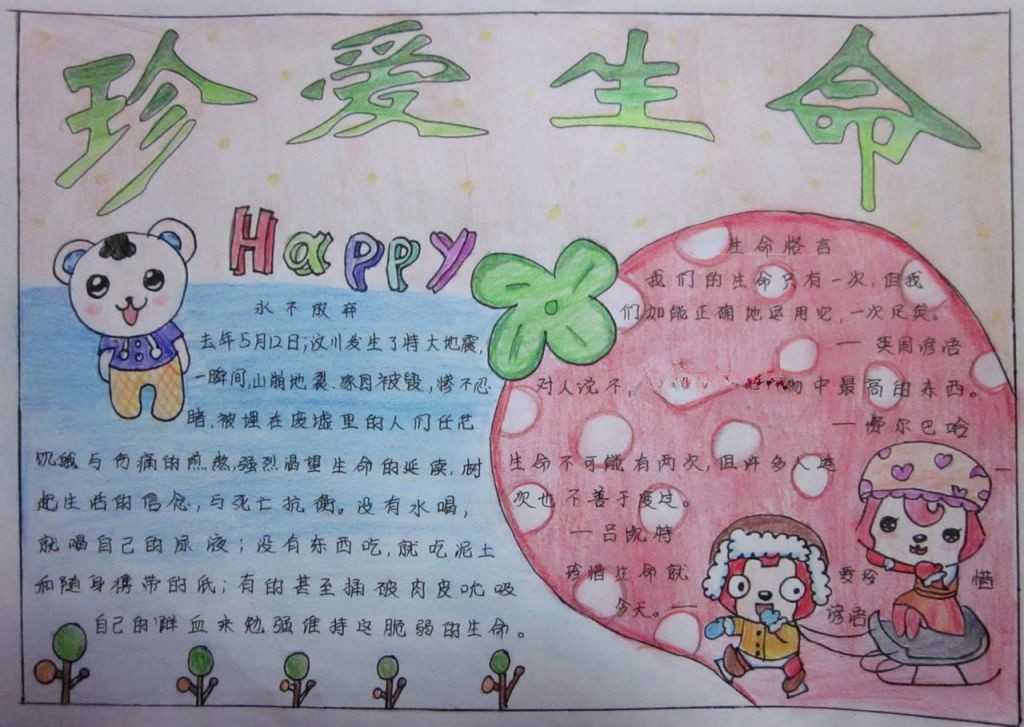 珍爱生命
Happy
永不放弃
去年5月12日,汶川发生了特大地震,
一瞬间,山崩地裂.家园被毁,惨不忍
睹,被埋在废墟里的人们任凭
饥饿与伤痛的煎熬,强烈渴望生命的延续,树
起生活的信念,与死亡抗衡。没有水喝,
就喝自己的尿液;没有东西吃,就吃泥土
和随身携带的纸;有的甚至捅破肉皮吮吸
自己的鲜血来勉强维持这脆弱的生命。
生命格言
我们的生命只有一次,但我
们如能正确地运用它,一次足矣。
—英国谚语
对人说不,
物中最高的东西。
—费尔巴哈
生命不可能有两次,但许多人连一
次也不善于度过。
—吕凯特
珍惜生命就
要珍惜
今天。—
谚语